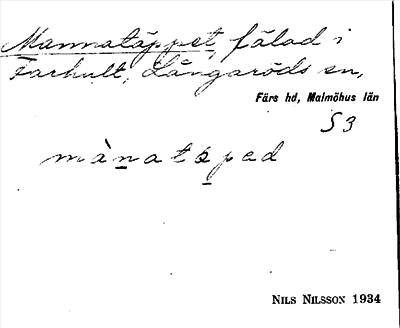 Mannatäppet, fälad i
Farhult, Långaröds sn,
Färs hd, Malmöhus län
S3
mànatäped
NILS NILSSON 1934